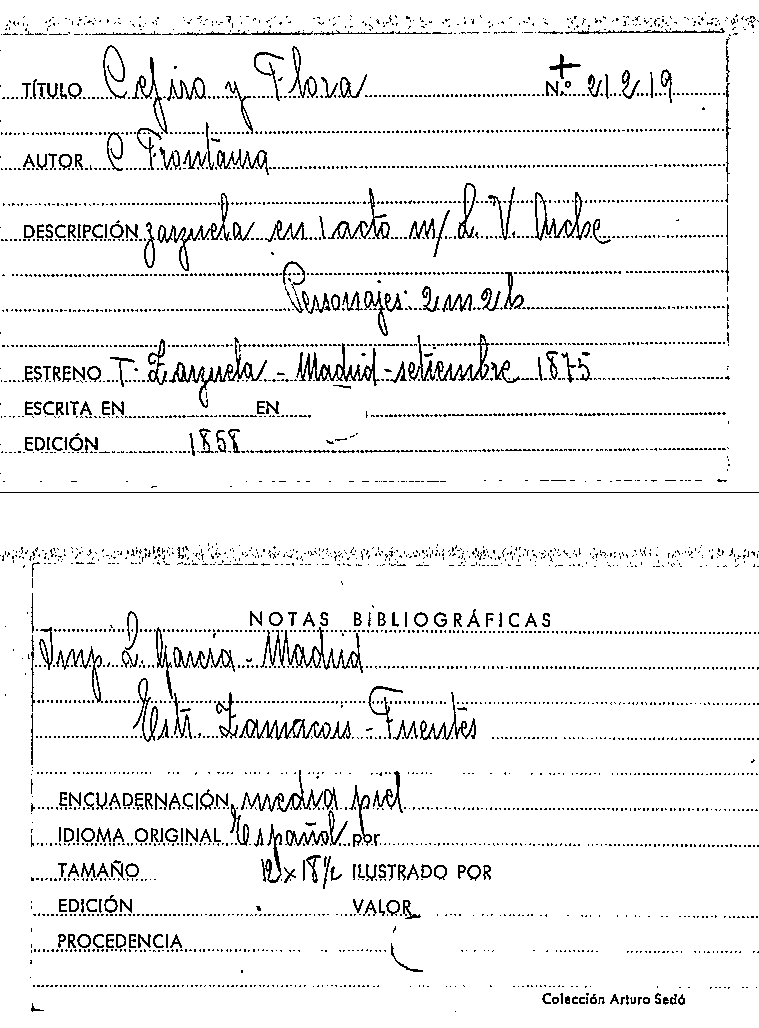 TÍTULO Cefiro y Flora N.º 21219
AUTOR C Frontaura
DESCRIPCIÓN zarzuela en 1 acto m/ L. V. Arche
Personajes: 2 m 2 h
ESTRENO T. Zarzuela - Madrid - setiembre 1875
ESCRITA EN EN
EDICIÓN 1858
NOTAS BIBLIOGRÁFICAS
Imp. L. Garcia - Madrid
Estr. Zamacois - Fuentes
ENCUADERNACIÓN media piel
IDIOMA ORIGINAL Español por
TAMAÑO 12 x 18½ ILUSTRADO POR
EDICIÓN VALOR
PROCEDENCIA
Colección Arturo Sedó